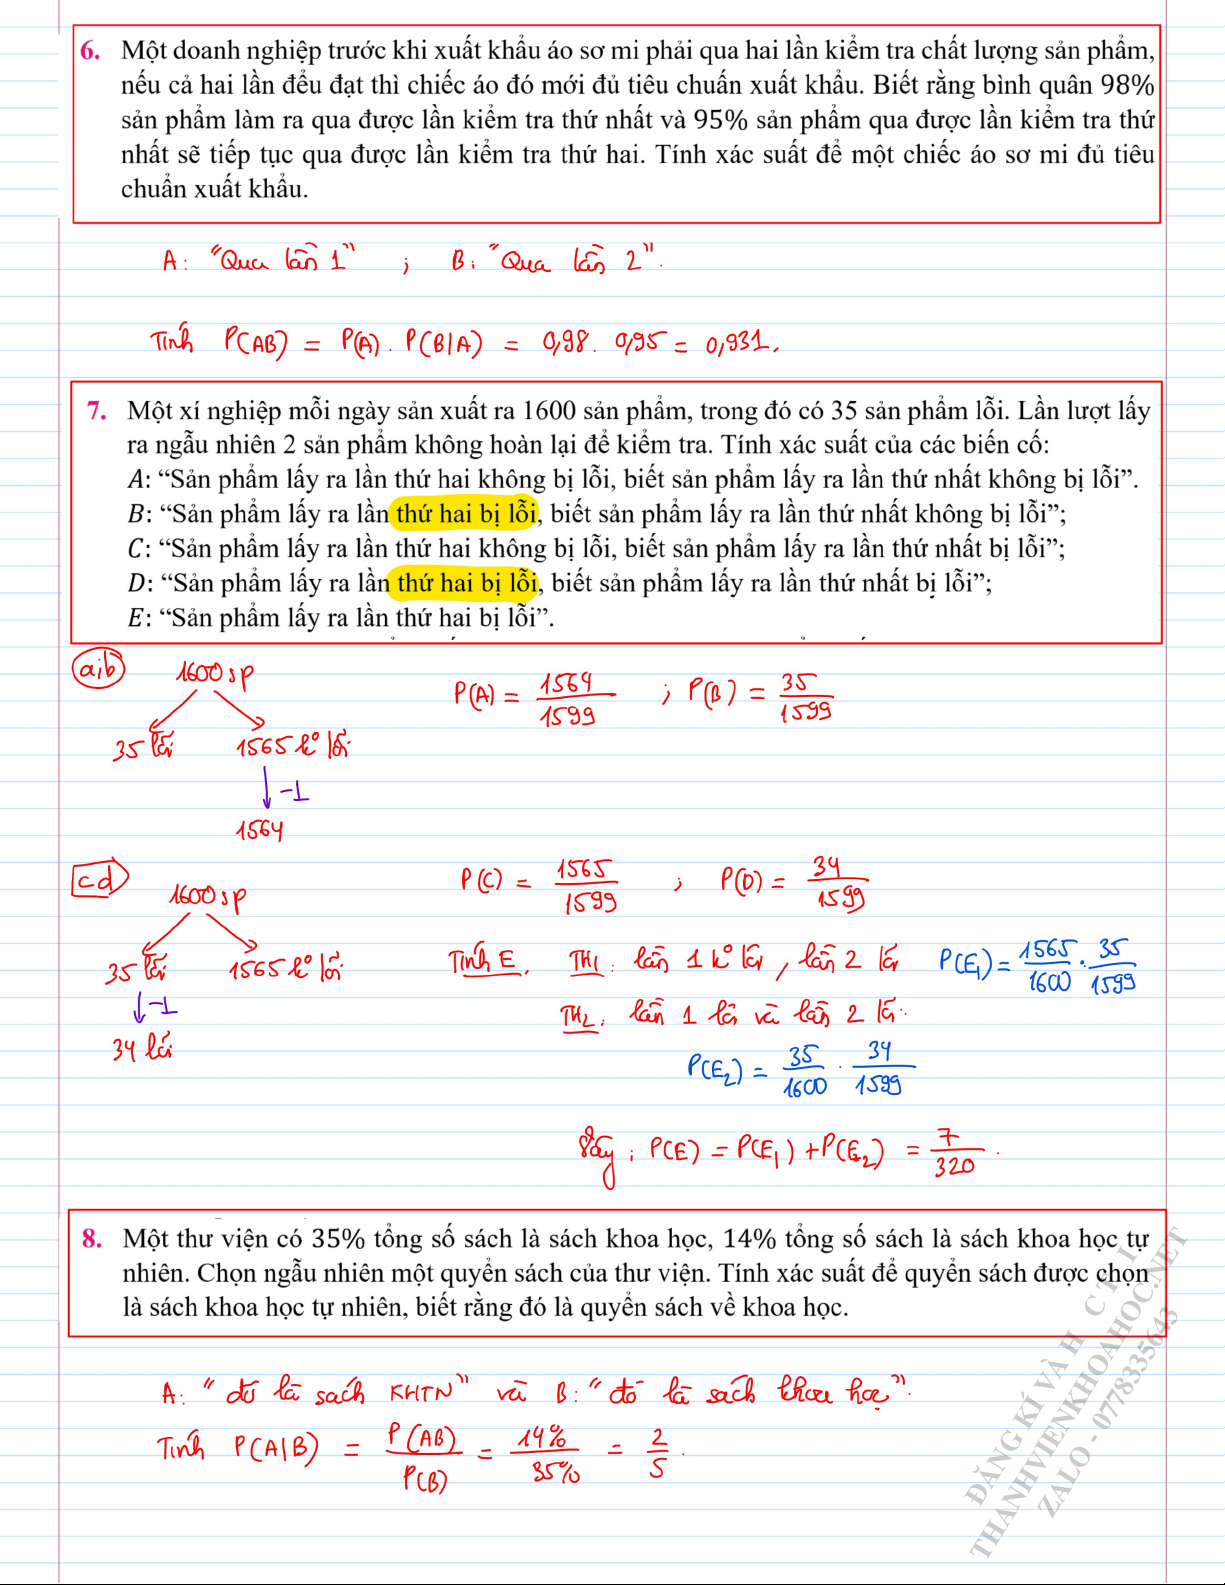 6. Một doanh nghiệp trước khi xuất khẩu áo sơ mi phải qua hai lần kiểm tra chất lượng sản phẩm,
nếu cả hai lần đều đạt thì chiếc áo đó mới đủ tiêu chuẩn xuất khẩu. Biết rằng bình quân 98%
sản phẩm làm ra qua được lần kiểm tra thứ nhất và 95% sản phẩm qua được lần kiểm tra thứ
nhất sẽ tiếp tục qua được lần kiểm tra thứ hai. Tính xác suất để một chiếc áo sơ mi đủ tiêu
chuẩn xuất khẩu.
A: "Qua lần 1" ; B: "Qua lần 2".
Tính P(AB) = P(A) . P(B|A) = 0,98 . 0,95 = 0,931.
7. Một xí nghiệp mỗi ngày sản xuất ra 1600 sản phẩm, trong đó có 35 sản phẩm lỗi. Lần lượt lấy
ra ngẫu nhiên 2 sản phẩm không hoàn lại để kiểm tra. Tính xác suất của các biến cố:
A: “Sản phẩm lấy ra lần thứ hai không bị lỗi, biết sản phẩm lấy ra lần thứ nhất không bị lỗi”.
B: “Sản phẩm lấy ra lần thứ hai bị lỗi, biết sản phẩm lấy ra lần thứ nhất không bị lỗi”;
C: “Sản phẩm lấy ra lần thứ hai không bị lỗi, biết sản phẩm lấy ra lần thứ nhất bị lỗi”;
D: “Sản phẩm lấy ra lần thứ hai bị lỗi, biết sản phẩm lấy ra lần thứ nhất bị lỗi”;
E: “Sản phẩm lấy ra lần thứ hai bị lỗi”.
a;b 1600 sp P(A) = 1564/1599 ; P(B) = 35/1599
35 lỗi 1565 k° lỗi
-1
1564
cd 1600 sp P(C) = 1565/1599 ; P(D) = 34/1599
35 lỗi 1565 k° lỗi Tính E. TH1: lần 1 k° lỗi, lần 2 lỗi P(E1) = 1565/1600 . 35/1599
-1 TH2: lần 1 lỗi và lần 2 lỗi.
34 lỗi
P(E2) = 35/1600 . 34/1599
Vậy: P(E) = P(E1) + P(E2) = 7/320.
8. Một thư viện có 35% tổng số sách là sách khoa học, 14% tổng số sách là sách khoa học tự
nhiên. Chọn ngẫu nhiên một quyển sách của thư viện. Tính xác suất để quyển sách được chọn
là sách khoa học tự nhiên, biết rằng đó là quyển sách về khoa học.
A: "đó là sách KHTN" và B: "đó là sách khoa học".
Tính P(A|B) = P(AB)/P(B) = 14%/35% = 2/5.
ĐĂNG KÍ VÀ H C T I
THANHVIENKHOAHOC.NET
ZALO - 0778335643